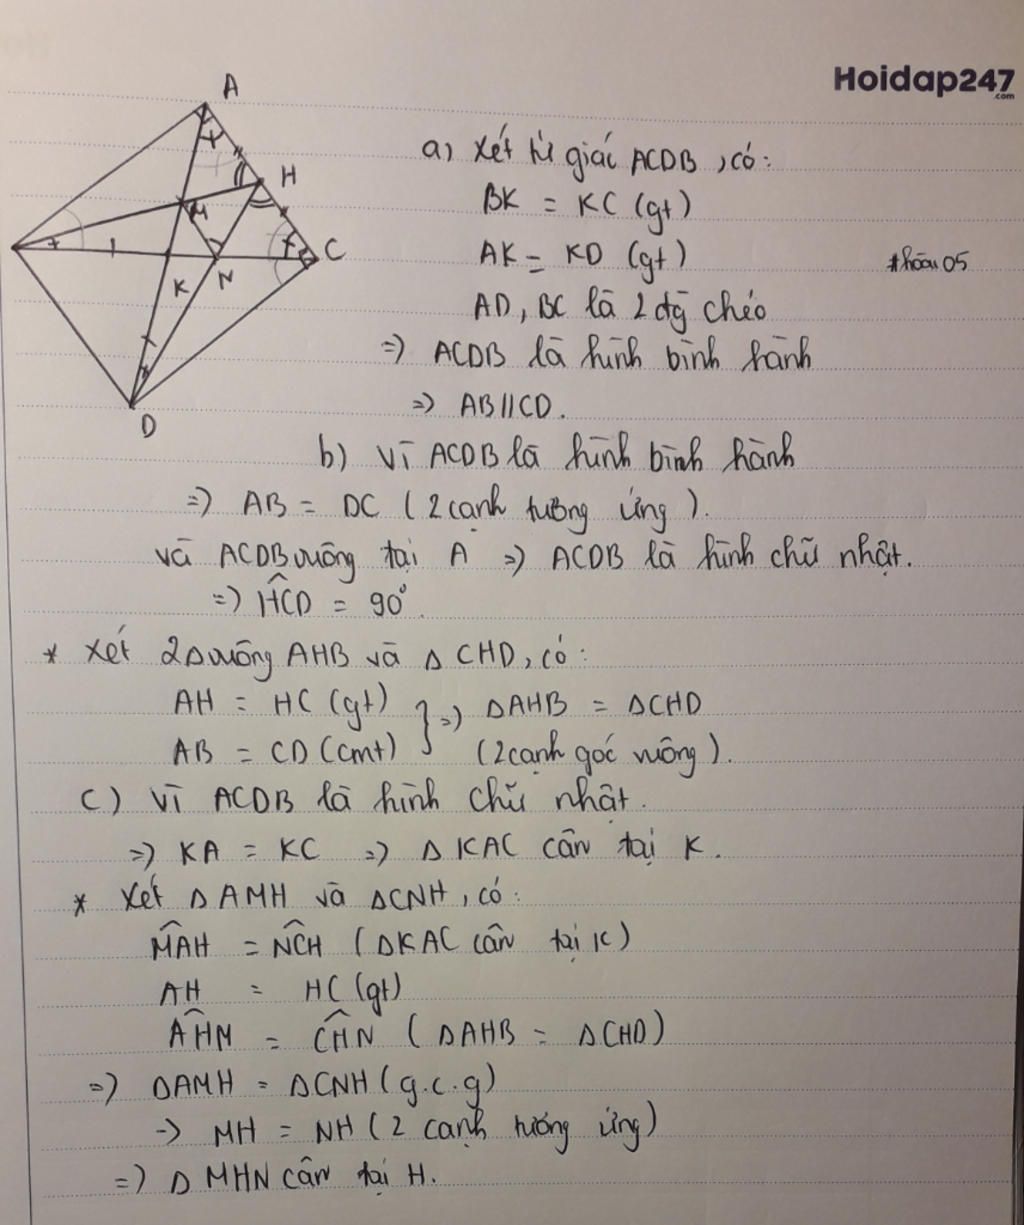 Hoidap247
.com
A
H
M
K
N
C
D
a) Xét tứ giác ACDB, có:
BK = KC (gt)
AK = KD (gt)
#hoàu05
AD, BC là 2 đg chéo
=) ACDB là hình bình hành
=) AB//CD.
b) Vì ACDB là hình bình hành
=) AB = DC (2 cạnh tương ứng).
và ACDB vuông tại A =) ACDB là hình chữ nhật.
=) HCD = 90°.
* Xét 2Δ vuông AHB và Δ CHD, có:
AH = HC (gt) } =) ΔAHB = ΔCHD
AB = CD (cmt) (2 cạnh góc vuông).
c) Vì ACDB là hình chữ nhật.
=) KA = KC =) Δ KAC cân tại K.
* Xét Δ AMH và ΔCNH, có:
MAH = NCH (ΔKAC cân tại K)
AH = HC (gt)
AHM = CHN (ΔAHB = ΔCHD)
=) ΔAMH = ΔCNH (g.c.g)
-> MH = NH (2 cạnh tướng ứng)
=) Δ MHN cân tại H.